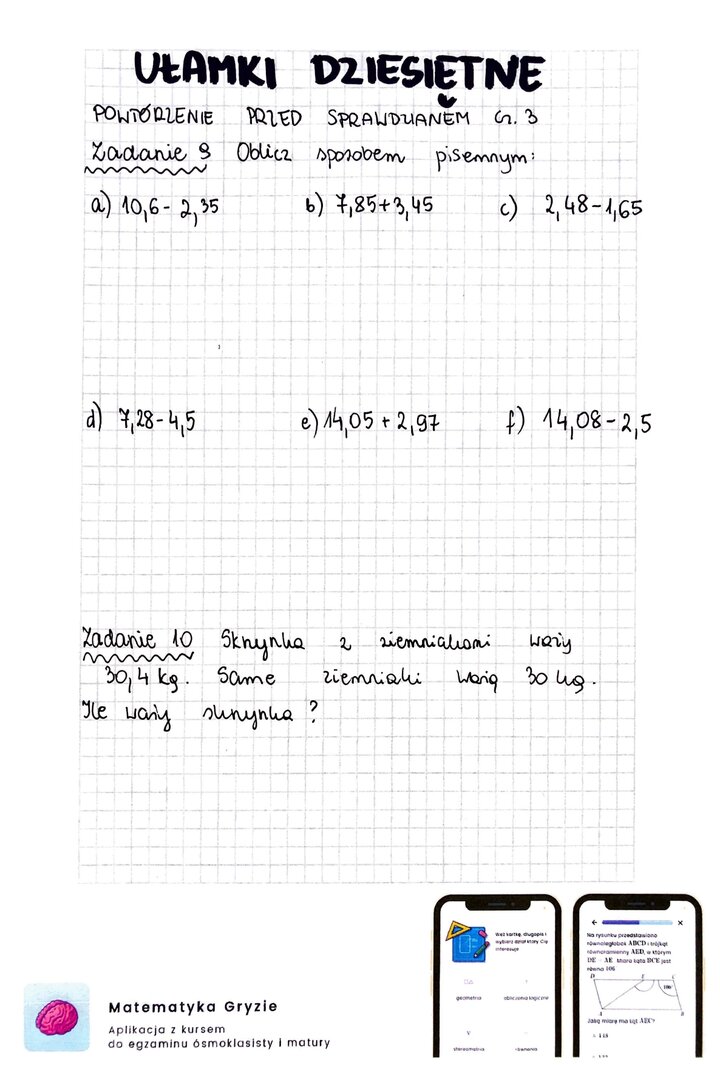 UŁAMKI DZIESIĘTNE
POWTÓRZENIE PRZED SPRAWDZIANEM CZ. 3
Zadanie 9 Oblicz sposobem pisemnym:
a) 10,6 - 2,35 b) 7,85+3,45 c) 2,48-1,65
d) 7,28-4,5 e) 14,05 + 2,97 f) 14,08-2,5
Zadanie 10 Skrzynka z ziemniakami waży
30,4 kg. Same ziemniaki ważą 30 kg.
Ile waży skrzynka?
Weź kartkę, długopis i
wybierz dział który Cię
interesuje
geometria obliczenia logiczne
stereometria równania
Na rysunku przedstawiono
równoległobok ABCD i trójkąt
równoramienny AED, w którym
DE = AE. Miara kąta BCE jest
równa 106
D E C
106
A B
Jaką miarę ma kąt AEC?
Matematyka Gryzie
Aplikacja z kursem
do egzaminu ósmoklasisty i matury